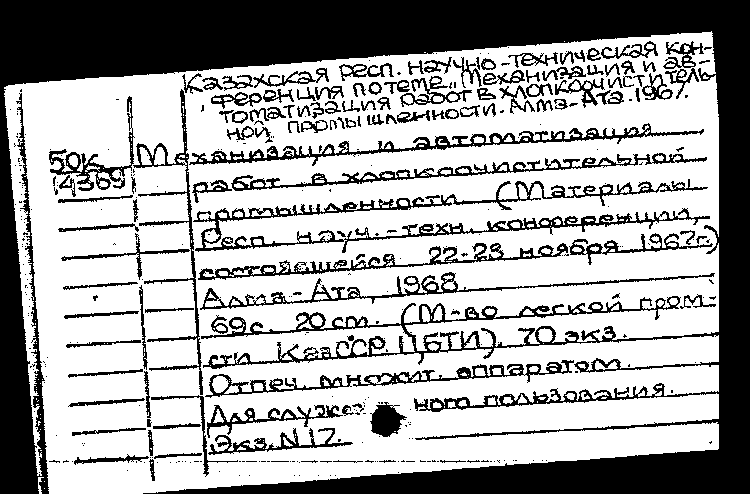 Казахская респ. научно-техническая кон-
ференция по теме „Механизация и ав-
томатизация работ в хлопкоочиститель-
ной промышленности. Алма-Ата. 1967.
50к Механизация и автоматизация
14369 работ в хлопкоочистительной
промышленности. (Материалы
Респ. науч.-техн. конференции,
состоявшейся 22-23 ноября 1967г.)
Алма-Ата, 1968.
69с. 20см. (М-во легкой пром-
сти КазССР. ЦБТИ). 70 экз.
Отпеч. множит. аппаратом.
Для служебного пользования.
Экз. N 17.